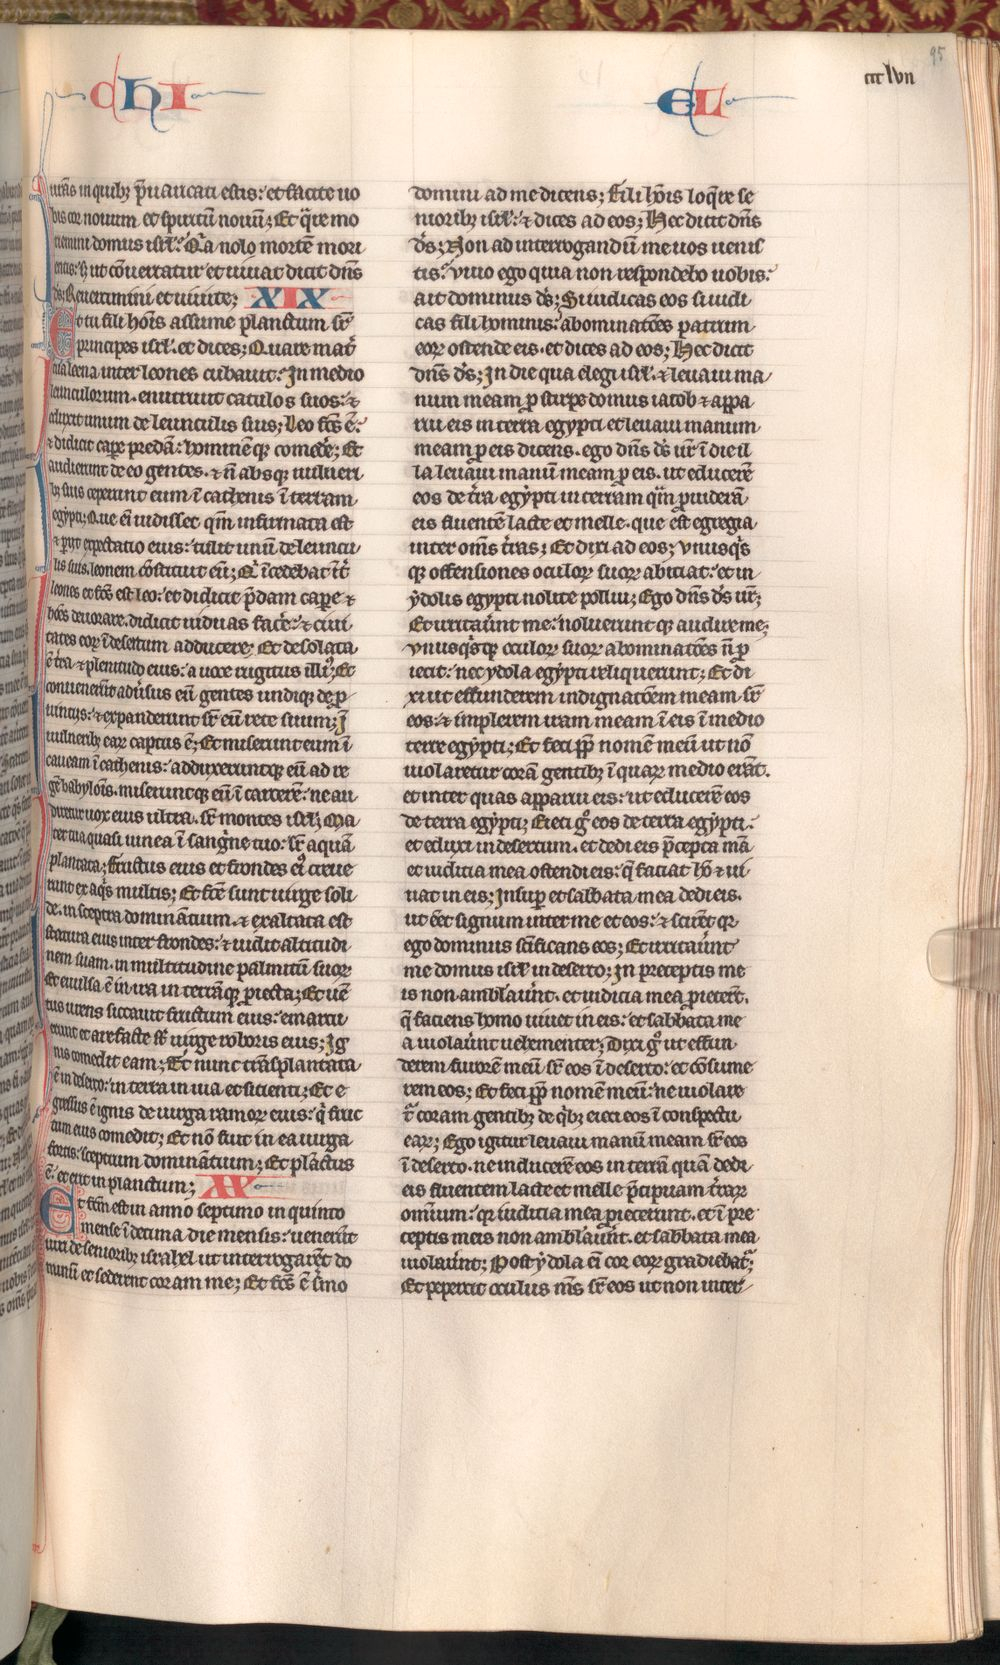 chI
EL
ccc lvii
95
ur̄as in quibꝫ p̄uaricati estis: et facite uo
bis cor nouum et spiritū nouū; Et q̄re mo
riemini domus isrl̓? Q̓a nolo mortē mori
entis: sꝫ ut cōuertatur et uiuat dicit dn̄s
d̄s; Reuertimini et uiuite; XIX
Et tu fili hoīs assume planctum sr̄
principes isrl̓. et dices; Quare mat̄
tua leena inter leones cubauit: In medio
leunculorum. enutriuit catulos suos: ⁊
eduxit unum de leunculis suis; Leo fc̄s ē:
⁊ didicit cape predā: hominēqꝫ comedē; Et
audierunt de eo gentes. ⁊ n̄ absqꝫ uulneri
bꝫ suis ceperunt eum ī cathenis ī terram
egypti; Que cū uidisset qm̄ infirmata est
⁊ periit expectatio eius: tulit unū de leuncu
lis suis. leonem cōstituit eū; Q̓ īcedebat īt̄
leones et fc̄s est leo: et didicit p̄dam cape ⁊
hoēs deuorare. didicit uiduas facē: ⁊ ciui
tates eorꝫ ī desertum adducere; Et desolata
ē t̄ra ⁊ plenitudo eius: a uoce rugitus illi᷒; Et
conuenerūt adūsus eū gentes undiqꝫ de ꝓ
uinciis: ⁊ expanderunt sr̄ eū rete suum; ī
uulneribꝫ earꝫ captus ē; Et miserunt eum ī
caueam ī cathenis: adduxeruntqꝫ eū ad re
gē babylōis. miseruntqꝫ eū ī carcerē: ne au
diretur uox eius ultra. sr̄ montes isrl̓; Ma
ter tua quasi uinea ī sanguine tuo: sr̄ aquā
plantata; fructus eius et frondes ei᷒ creue
runt ex aq̄s multis; Et fc̄e sunt uirge soli
de. in sceptra dominātium. ⁊ exaltata est
statura eius inter frondes: ⁊ uidit altitudi
nem suam. in multitudine palmitū suorꝫ
Et euulsa ē in ira in terrāqꝫ proiecta; Et uē
tus urens siccauit fructum eius: emarcu
erunt et arefacte st̄ uirge roboris eius; Ig
nis comedit eam; Et nunc trāsplantata
ē in deserto: in terra inuia et sitienti; Et e
gressus ē ignis de uirga ramorꝫ eius: q̄ fruc
tum eius comedit; Et nō fuit in ea uirga
fortis: sceptrum dominātium; Et plāctus
ē: et erit in planctum; XX
Et fc̄m est in anno septimo in quinto
mense ī decima die mensis: uenerūt
uiri de senioribꝫ israhel ut interrogarēt do
minū et sederunt coram me; Et fc̄s ē sermo
domini ad me dicens; Fili hoīs loq̄re se
nioribꝫ isrl̓: ⁊ dices ad eos; Hec dicit dn̄s
d̄s; Non ad interrogandū me uos uenis
tis? viuo ego quia non respondebo uobis:
ait dominus d̄s; Si iudicas eos si iudi
cas fili hominis: abominatōes patrum
eorꝫ ostende eis. et dices ad eos; Hec dicit
dn̄s d̄s; In die qua elegi isrl̓. ⁊ leuaui ma
num meam p̱ stirpe domus iacob ⁊ appa
rui eis in terra egypti et leuaui manum
meam p̱ eis dicens. ego dn̄s d̄s ur̄ ī die il
la leuaui manū meam p̱ eis. ut educerē
eos de t̄ra egypti in terram quā prouiderā
eis fluentē lacte et melle. que est egregia
inter om̄s t̄ras; Et dixi ad eos; vnusq̓s
qꝫ offensiones oculorꝫ suorꝫ abiciat: et in
ydolis egypti nolite pollui; Ego dn̄s d̄s ur̄;
Et irritauer̄t me: nolueruntqꝫ audire me;
vnusq̓sqꝫ oculorꝫ suorꝫ abominatōes n̄ p̱
iecit: nec ydola egypti reliquerunt; Et di
xi ut effunderem indignatōem meam sr̄
eos: ⁊ implerem iram meam ī eis ī medio
terre egypti; Et feci pp̄ nomē meū ut nō
uiolaretur corā gentibꝫ ī quarꝫ medio erāt.
et inter quas apparui eis: ut educerē eos
de terra egypti; Eieci g̊ eos de terra egypti:
et eduxi in desertum. et dedi eis p̄cepta mā
et iudicia mea ostendi eis: q̄ faciat hō ⁊ ui
uat in eis; Insuper et sabbata mea dedi eis.
ut eēt signum inter me et eos: ⁊ scirēt qꝫ
ego dominus sc̄ificans eos; Et irritauer̄t
me domus isrl̓ in deserto; In preceptis me
is non amblauer̄t. et iudicia mea p̱iecer̄t.
q̄ faciens homo uiuet in eis: et sabbata me
a uiolauer̄t uehementer; Dixi g̊ ut effun
derem furorē meū sr̄ eos ī deserto: et cōsume
rem eos; Et feci pp̄ nomē meū: ne uiolare
t̄ coram gentibꝫ de q̓bꝫ eieci eos ī conspectu
earꝫ; Ego igitur leuaui manū meam sr̄ eos
ī deserto. ne inducerē eos in terrā quā dedi
eis fluentem lacte et melle p̄cipuam t̄rarꝫ
omnium: qꝫ iudicia mea p̱iecerunt. et ī pre
ceptis meis non amblauer̄t. et sabbata mea
uiolauer̄t; Post ydola eī cor eorꝫ gradiebat̄;
Et pepercit oculus m̄s sr̄ eos ut non inter